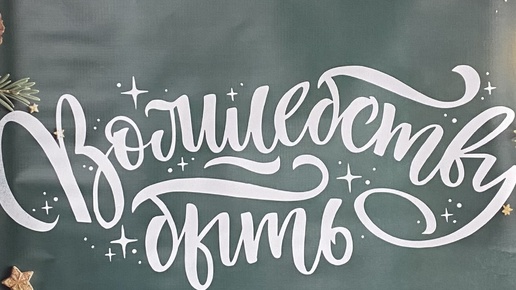 Волшебству
быть